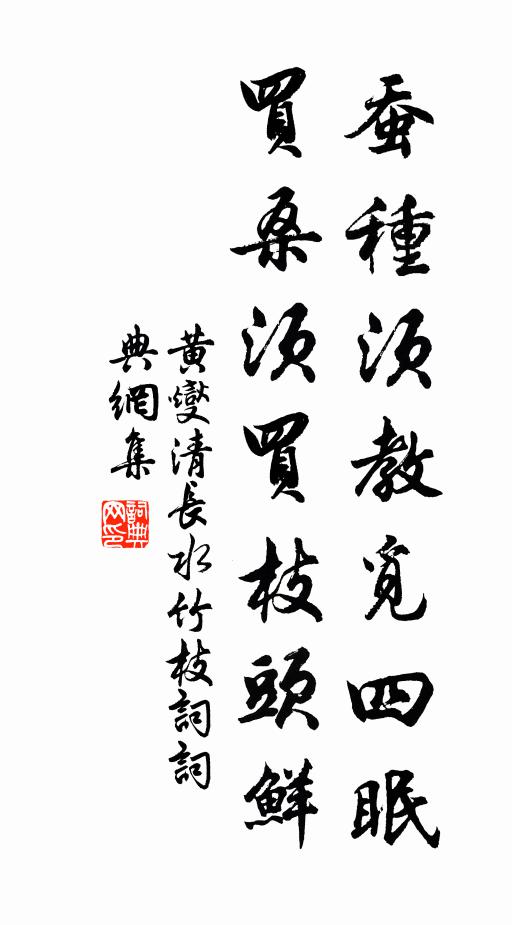 蚕種須教覓四眠
買桑須買枝頭鮮
黄燮清長水竹枝詞詞
典網集
詞典
网印